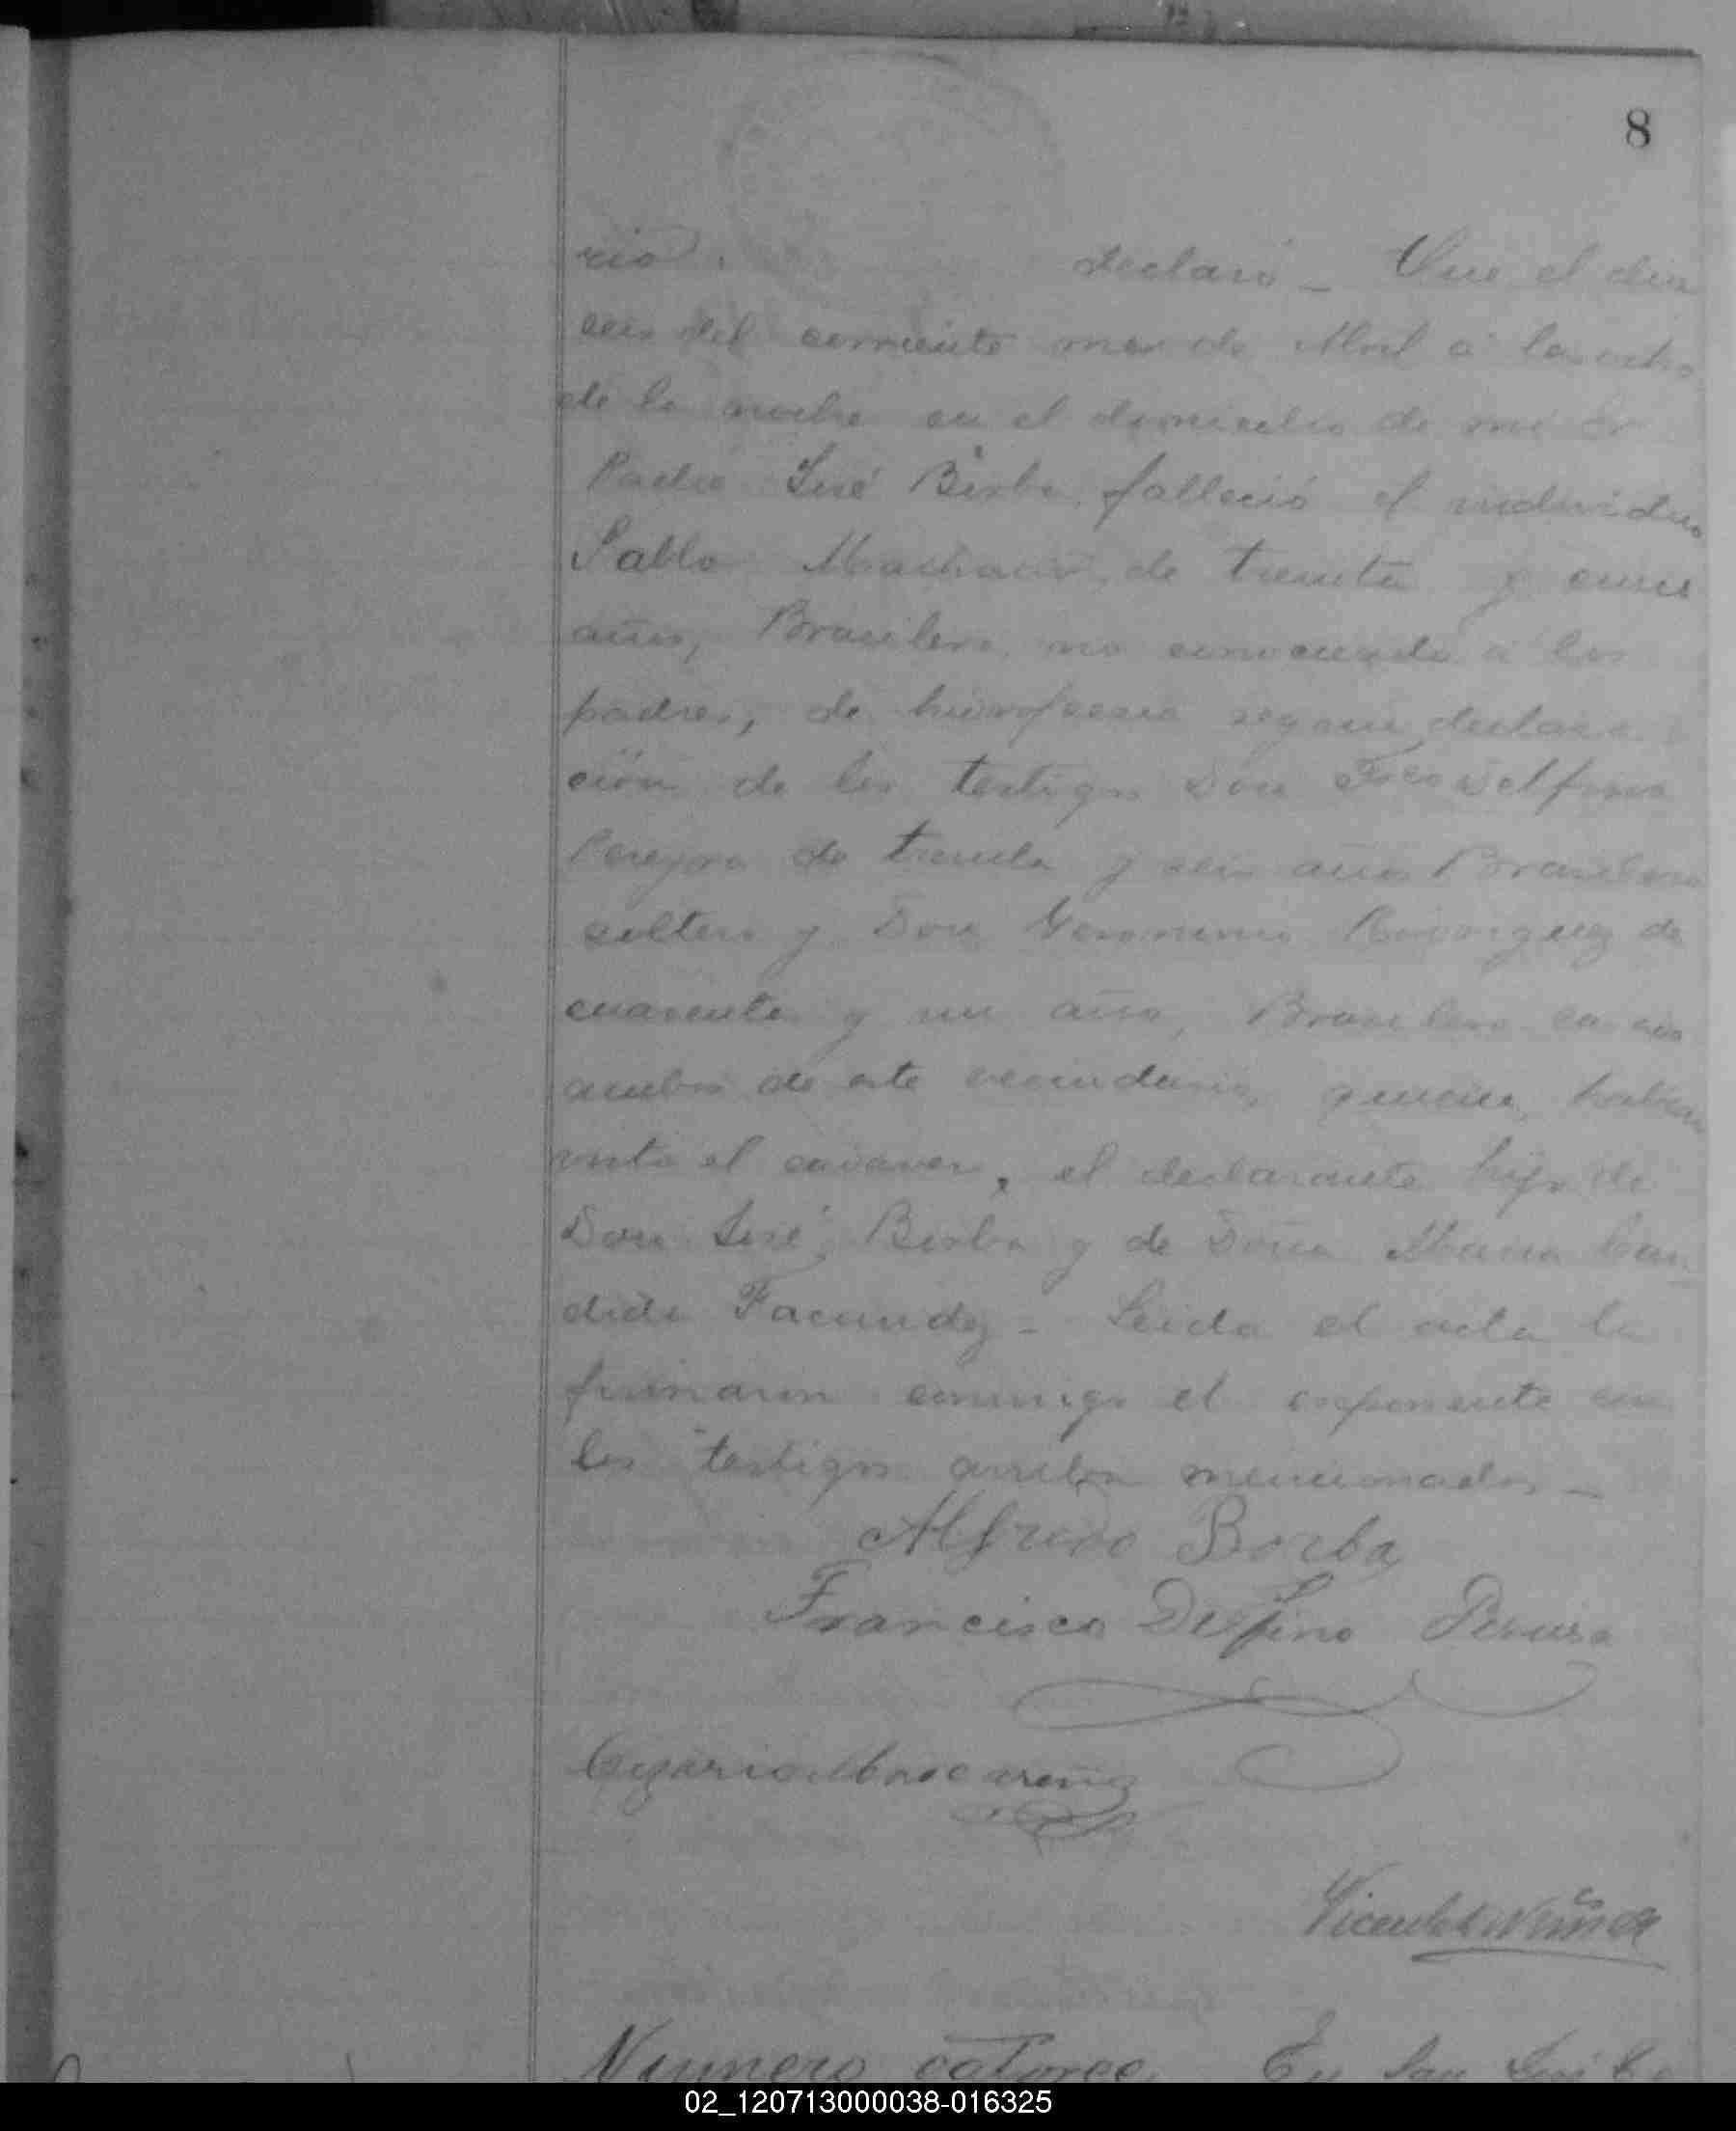 8
rio. declaró _ Que el dia
seis del corriente mes de Abril á las ocho
de la noche en el domicilio de mi Sr
Padre José Borba, falleció el individuo
Pablo Machado, de treinta y cinco
años, Brasilero no conociendo á los
padres, de hidropesia segun declara
ción de los testigos Don Fco Delfino
Pereyra de treinta y seis años Brasilero
soltero y Don Geronimo Rodriguez de
cuarenta y un años, Brasilero casado
ambos de este vecindario, quienes habian
visto el cadaver, el declarante hijo de
Don José Borba y de Doña Maria Can
dida Facundez - Leida el acta la
firmaron conmigo el exponente con
los testigos arriba mencionados _
Alfredo Borba
Francisco Delfino Pereira
Vicente
Numero catorce En San
02_120713000038-016325